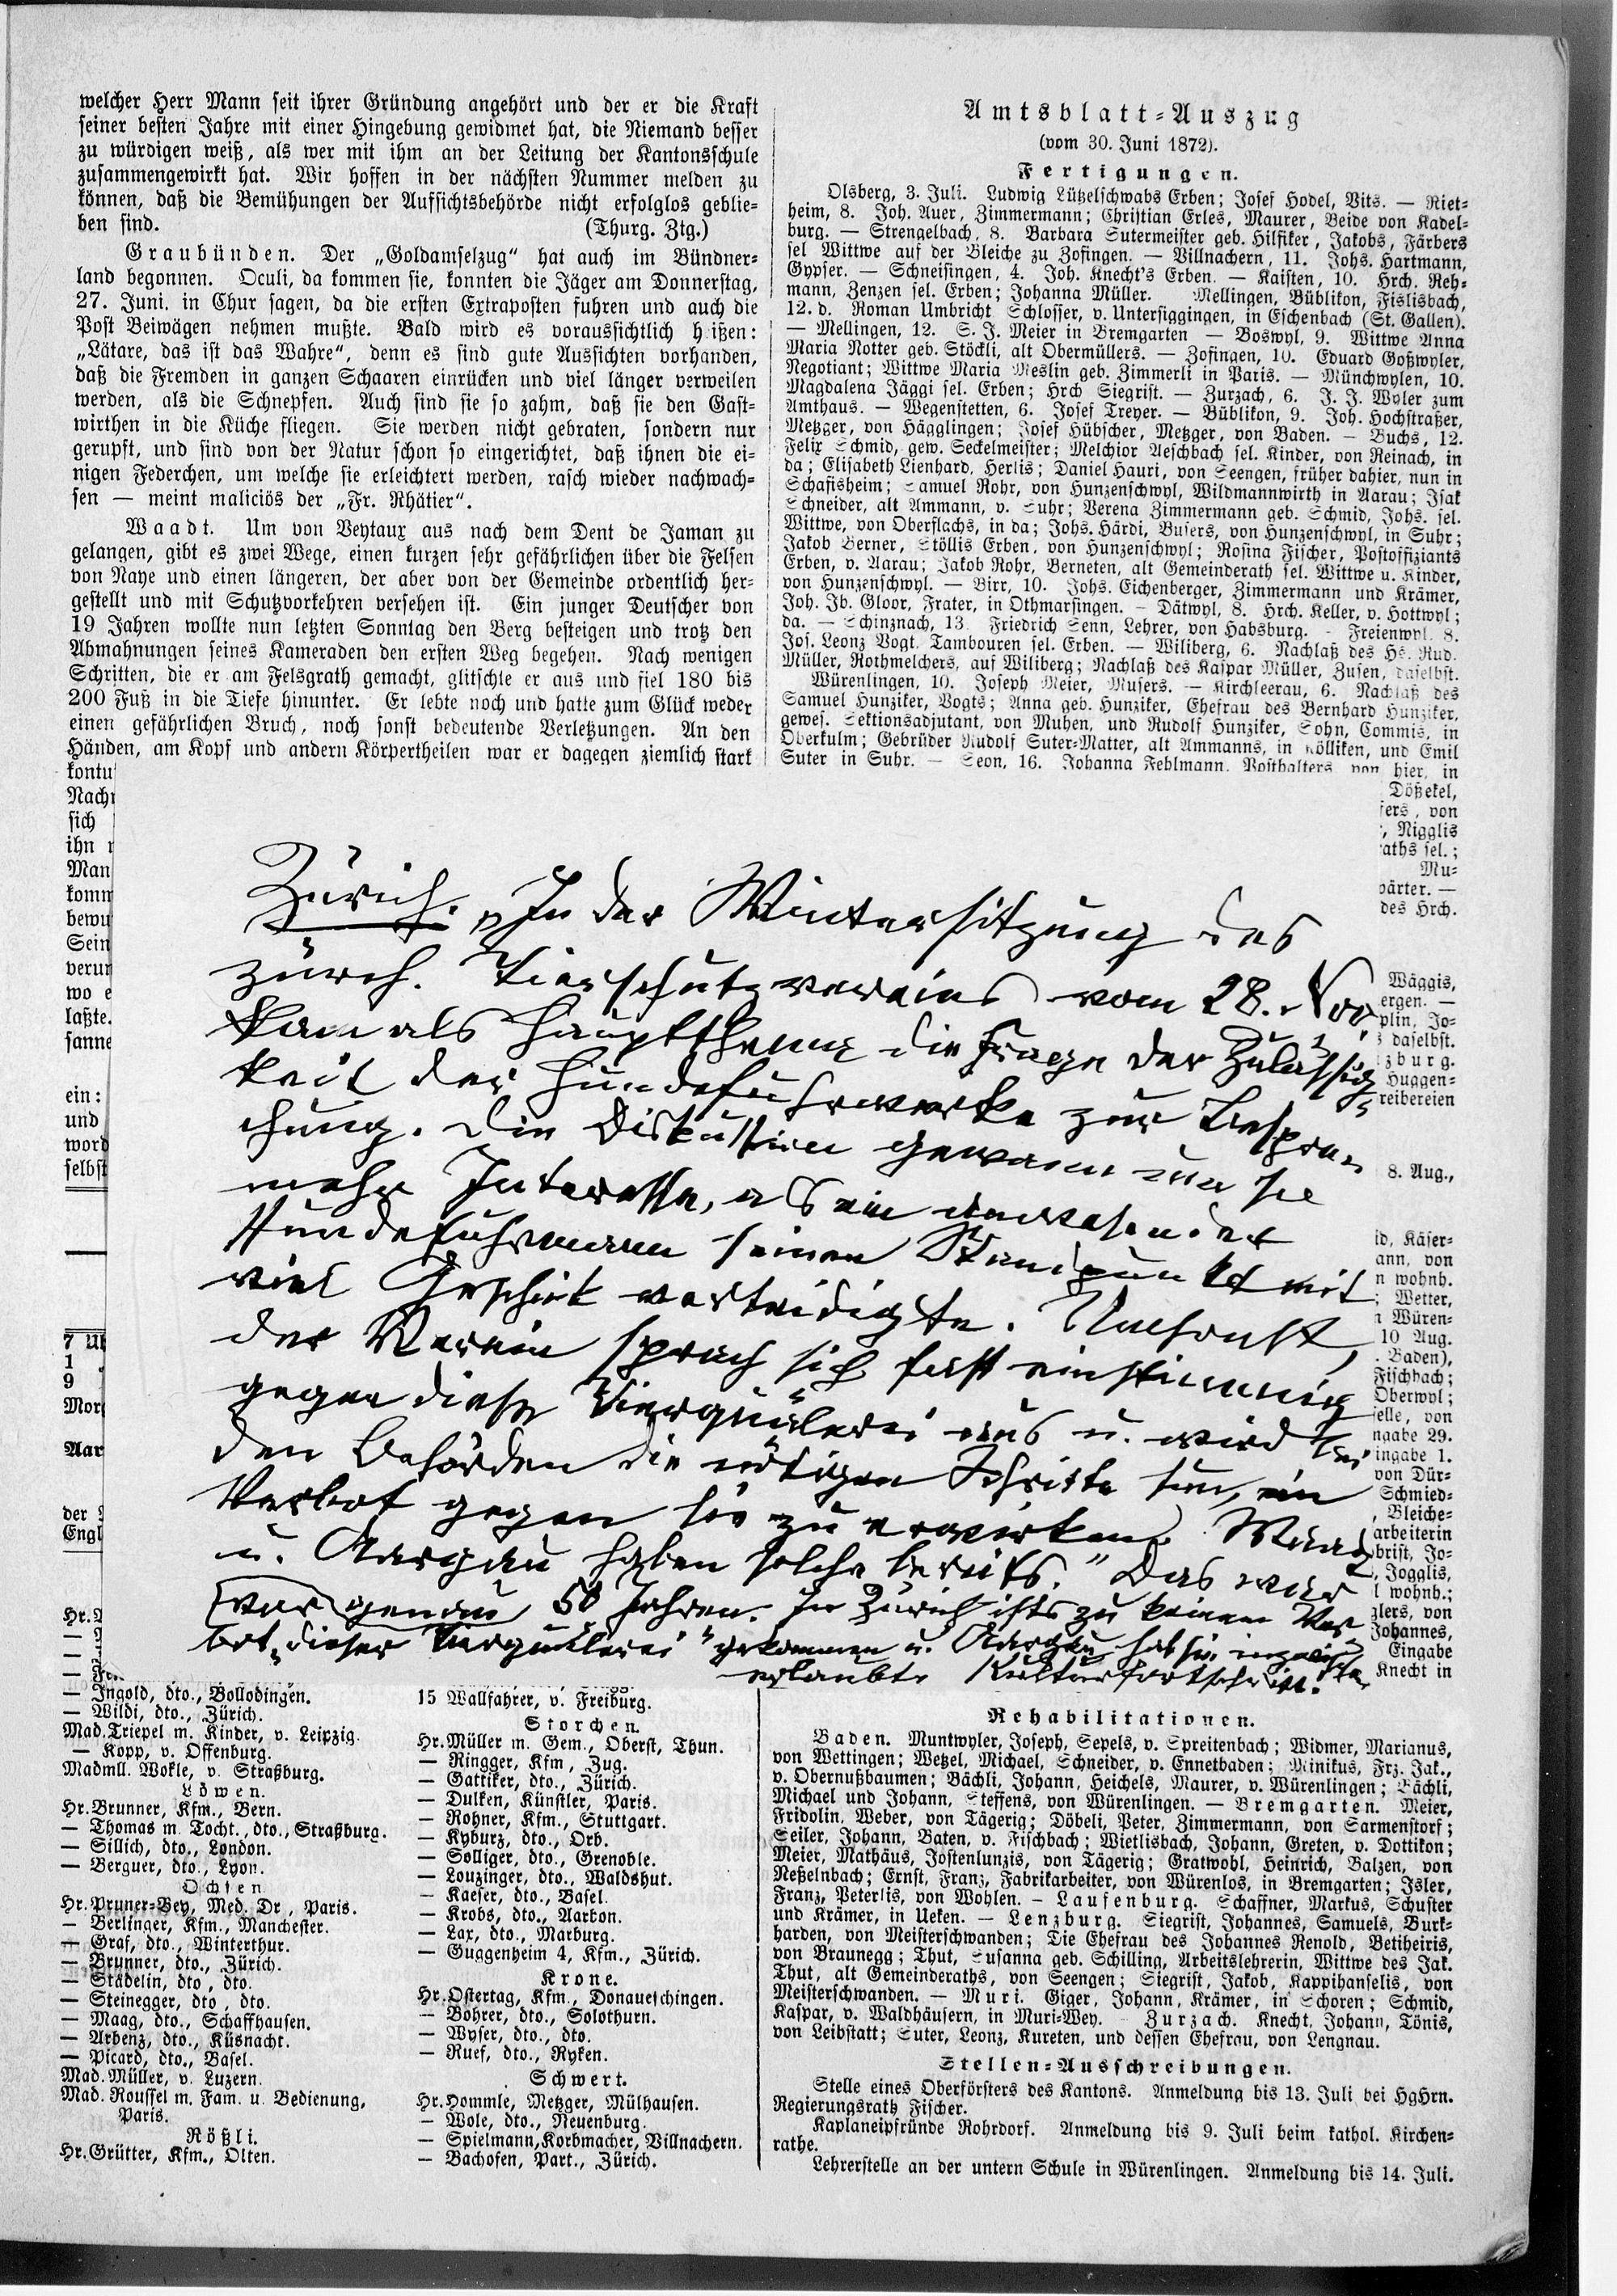 welcher Herr Mann seit ihrer Gründung angehört und der er die Kraft
seiner besten Jahre mit einer Hingebung gewidmet hat, die Niemand besser
zu würdigen weiß, als wer mit ihm an der Leitung der Kantonsschule
zusammengewirkt hat. Wir hoffen in der nächsten Nummer melden zu
können, daß die Bemühungen der Aufsichtsbehörde nicht erfolglos geblie-
ben sind. (Thurg. Ztg.)
Graubünden. Der „Goldamselzug“ hat auch im Bündner-
land begonnen. Oculi, da kommen sie, konnten die Jäger am Donnerstag,
27. Juni. in Chur sagen, da die ersten Extraposten fuhren und auch die
Post Beiwägen nehmen mußte. Bald wird es voraussichtlich h ißen:
„Lätare, das ist das Wahre“, denn es sind gute Aussichten vorhanden,
daß die Fremden in ganzen Schaaren einrücken und viel länger verweilen
werden, als die Schnepfen. Auch sind sie so zahm, daß sie den Gast-
wirthen in die Küche fliegen. Sie werden nicht gebraten, sondern nur
gerupft, und sind von der Natur schon so eingerichtet, daß ihnen die ei-
nigen Federchen, um welche sie erleichtert werden, rasch wieder nachwach-
sen — meint maliciös der „Fr. Rhätier“.
Waadt. Um von Veytaux aus nach dem Dent de Jaman zu
gelangen, gibt es zwei Wege, einen kurzen sehr gefährlichen über die Felsen
von Naye und einen längeren, der aber von der Gemeinde ordentlich her-
gestellt und mit Schutzvorkehren versehen ist. Ein junger Deutscher von
19 Jahren wollte nun letzten Sonntag den Berg besteigen und trotz den
Abmahnungen seines Kameraden den ersten Weg begehen. Nach wenigen
Schritten, die er am Felsgrath gemacht, glitschte er aus und fiel 180 bis
200 Fuß in die Tiefe hinunter. Er lebte noch und hatte zum Glück weder
einen gefährlichen Bruch, noch sonst bedeutende Verletzungen. An den
Händen, am Kopf und andern Körpertheilen war er dagegen ziemlich stark
kontu
Nach
sich
ihn
Man
komm
bewu
Sein
verun
wo e
laßte.
sanne
ein:
und
word
selbst
7 Uh
1
9
Mor
Aar
der
Engl
Hr.
Zürich. „In der Wintersitzung des
zürch. Tierschutzvereins vom 28. Nov.
kam als Hauptthema die Frage der Zulässig-
keit der Hundefuhrwerke zur Bespre-
chung. Die Diskussion gewann um so
mehr Interesse, als ein anwesender
Hundefuhrmann seinen Standpunkt mit
viel Geschick verteidigte. Umsonst,
der Verein sprach sich fast einstimmig
gegen diese Tierquälerei aus u. wird bei
den Behörden die nötigen Schritte tun, ein
Verbot gegen sie zu erwirken. Waadt
u. Aargau haben solche bereits.“ Das war
vor genau 50 Jahren. In Zürich ists zu keinem Ver-
bot „dieser Tierquälerei“ gekommen u. Aargau hat sie inzwischen
erlaubt. Kulturfortschritt!
— Ingold, dto., Bollodingen.
— Wildi, dto., Zürich.
Mad. Triepel m. Kinder, v. Leipzig.
— Kopp, v. Offenburg.
Madmll. Wokle, v. Straßburg.
Löwen.
Hr. Brunner, Kfm., Bern.
— Thomas m. Tocht., dto., Straßburg.
— Sillich, dto., London.
— Berguer, dto., Lyon.
Ochsen
Hr. Pruner-Bey, Med. Dr., Paris.
— Berlinger, Kfm., Manchester.
— Graf, dto., Winterthur.
— Brunner, dto., Zürich.
— Städelin, dto, dto.
— Steinegger, dto, dto.
— Maag, dto., Schaffhausen.
— Arbenz, dto., Küsnacht.
— Picard, dto., Basel.
Mad. Müller, v. Luzern.
Mad. Roussel m. Fam. u. Bedienung,
Paris.
Rößli.
Hr. Grütter, Kfm., Olten.
15 Wallfahrer, v. Freiburg.
Storchen.
Hr. Müller m. Gem., Oberst, Thun.
— Ringger, Kfm, Zug.
— Gattiker, dto., Zürich.
— Dulken, Künstler, Paris.
— Rohner, Kfm., Stuttgart.
— Kyburz, dto., Orb.
— Solliger, dto., Grenoble.
— Louzinger, dto., Waldshut.
— Kaeser, dto., Basel.
— Krobs, dto., Aarbon.
— Lax, dto., Marburg.
— Guggenheim 4, Kfm., Zürich.
Krone.
Hr. Ostertag, Kfm., Donaueschingen.
— Bohrer, dto., Solothurn.
— Wyser, dto., dto.
— Ruef, dto., Ryken.
Schwert.
Hr. Hommle, Metzger, Mülhausen.
— Wole, dto., Neuenburg.
— Spielmann, Korbmacher, Villnachern.
— Bachofen, Part., Zürich.
Amtsblatt-Auszug
(vom 30. Juni 1872).
Fertigungen.
Olsberg, 3. Juli. Ludwig Lützelschwabs Erben; Josef Hodel, Vits. — Riet-
heim, 8. Joh. Auer, Zimmermann; Christian Erles, Maurer, Beide von Kadel-
burg. — Strengelbach, 8. Barbara Sutermeister geb. Hilfiker, Jakobs, Färbers
sel Wittwe auf der Bleiche zu Zofingen. — Villnachern, 11. Johs. Hartmann,
Gypser. — Schneisingen, 4. Joh. Knecht's Erben. — Kaisten, 10. Hrch. Reh-
mann, Zenzen sel. Erben; Johanna Müller. Mellingen, Büblikon, Fislisbach,
12. d. Roman Umbricht Schlosser, v. Untersiggingen, in Eschenbach (St. Gallen).
— Mellingen, 12. S. J. Meier in Bremgarten — Boswyl, 9. Wittwe Anna
Maria Notter geb. Stöckli, alt Obermüllers. — Zofingen, 10. Eduard Goßwyler,
Negotiant; Wittwe Maria Meslin geb. Zimmerli in Paris. — Münchwylen, 10.
Magdalena Jäggi sel. Erben; Hrch Siegrist. — Zurzach, 6. J. J. Wyler zum
Amthaus. — Wegenstetten, 6. Josef Treyer. — Büblikon, 9. Joh. Hochstraßer,
Metzger, von Hägglingen; Josef Hübscher, Metzger, von Baden. — Buchs, 12.
Felix Schmid, gew. Seckelmeister; Melchior Aeschbach sel. Kinder, von Reinach, in
da; Elisabeth Lienhard, Herlis; Daniel Hauri, von Seengen, früher dahier, nun in
Schafisheim; Samuel Rohr, von Hunzenschwyl, Wildmannwirth in Aarau; Isak
Schneider, alt Ammann, v. Suhr; Verena Zimmermann geb. Schmid, Johs. sel.
Wittwe, von Oberflachs, in da; Johs. Härdi, Busers, von Hunzenschwyl, in Suhr;
Jakob Berner, Stöllis Erben, von Hunzenschwyl; Rosina Fischer, Postoffiziants
Erben, v. Aarau; Jakob Rohr, Berneten, alt Gemeinderath sel. Wittwe u. Kinder,
von Hunzenschwyl. — Birr, 10. Johs. Eichenberger, Zimmermann und Krämer,
Joh. Jb. Gloor, Frater, in Othmarsingen. — Dätwyl, 8. Hrch. Keller, v. Hottwyl;
da. — Schinznach, 13. Friedrich Senn, Lehrer, von Habsburg. - Freienwyl. 8.
Jos. Leonz Vogt, Tambouren sel. Erben. — Wiliberg, 6. Nachlaß des Hs. Rud.
Müller, Rothmelchers, auf Wiliberg; Nachlaß des Kaspar Müller, Zusen, daselbst.
Würenlingen, 10. Joseph Meier, Musers. — Kirchleerau, 6. Nachlaß des
Samuel Hunziker, Vogts; Anna geb. Hunziker, Ehefrau des Bernhard Hunziker,
gewes. Sektionsadjutant, von Muhen, und Rudolf Hunziker, Sohn, Commis, in
Oberkulm; Gebrüder Rudolf Suter-Matter, alt Ammanns, in Kölliken, und Emil
Suter in Suhr. — Seon, 16. Johanna Fehlmann, Posthalters von hier, in
Dößekel,
fers, von
, Nigglis
raths sel.;
Mu-
wärter. —
des Hrch.
Wäggis,
ergen. —
plin, Jo-
daselbst.
zburg.
Huggen-
reibereien
8. Aug.,
id, Käser-
ann, von
n wohnh.
; Wetter,
n Würen-
10 Aug.
. Baden),
Fischbach;
Oberwyl;
selle, von
ngabe 29.
ingabe 1.
von Dür-
Schmied-
, Bleiche-
arbeiterin
brist, Jo-
, Jogglis,
wohnh.;
zlers, von
Johannes,
Eingabe
Knecht in
Rehabilitationen.
Baden. Muntwyler, Joseph, Sepels, v. Spreitenbach; Widmer, Marianus,
von Wettingen; Wetzel, Michael, Schneider, v. Ennetbaden; Minikus, Frz. Jak.,
v. Obernußbaumen; Bächli, Johann, Heichels, Maurer, v. Würenlingen; Bächli,
Michael und Johann, Steffens, von Würenlingen. — Bremgarten. Meier,
Fridolin, Weber, von Tägerig; Döbeli, Peter, Zimmermann, von Sarmenstorf;
Seiler, Johann, Baten, v. Fischbach; Wietlisbach, Johann, Greten, v. Dottikon;
Meier, Mathäus, Jostenlunzis, von Tägerig; Gratwohl, Heinrich, Balzen, von
Neßelnbach; Ernst, Franz, Fabrikarbeiter, von Würenlos, in Bremgarten; Isler,
Franz, Peterlis, von Wohlen. — Laufenburg. Schaffner, Markus, Schuster
und Krämer, in Ueken. — Lenzburg. Siegrist, Johannes, Samuels, Burk-
harden, von Meisterschwanden; Die Ehefrau des Johannes Renold, Betiheiris,
von Braunegg; Thut, Susanna geb. Schilling, Arbeitslehrerin, Wittwe des Jak.
Thut, alt Gemeinderaths, von Seengen; Siegrist, Jakob, Kappihanselis, von
Meisterschwanden. — Muri. Giger, Johann, Krämer, in Schoren; Schmid,
Kaspar, v. Waldhäusern, in Muri-Wey. Zurzach. Knecht, Johann, Tönis,
von Leibstatt; Suter, Leonz, Kureten, und dessen Ehefrau, von Lengnau.
Stellen-Ausschreibungen.
Stelle eines Oberförsters des Kantons. Anmeldung bis 13. Juli bei HgHrn.
Regierungsrath Fischer.
Kaplaneipfründe Rohrdorf. Anmeldung bis 9. Juli beim kathol. Kirchen-
rathe.
Lehrerstelle an der untern Schule in Würenlingen. Anmeldung bis 14. Juli.